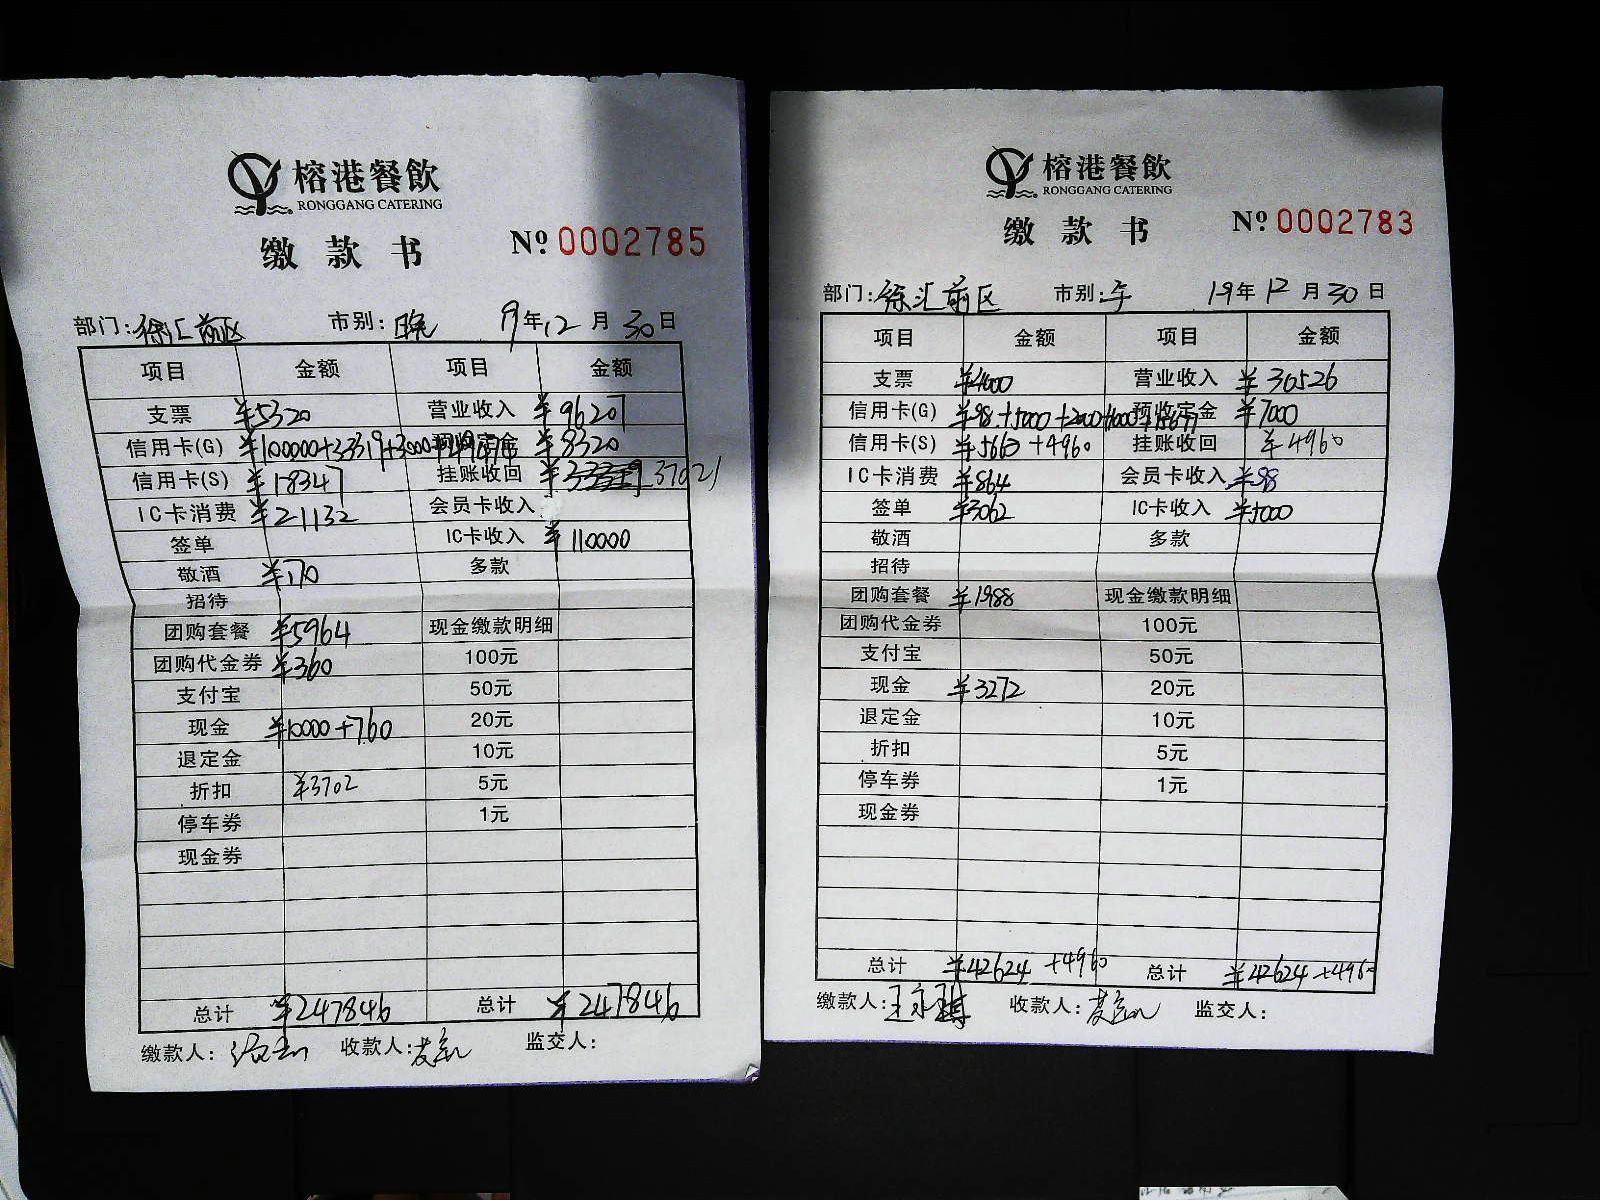 榕港餐飲
RONGGANG CATERING
缴款书 Nº 0002785
部门: 徐汇前区 市别: 晚 19年12月30日
项目 金额 项目 金额
支票 ¥5320 营业收入 ¥96207
信用卡(G) ¥100000+33319+3000+49474 预收定金 ¥8320
信用卡(S) ¥18347 挂账收回 ¥33319 37021
IC卡消费 ¥21132 会员卡收入
签单 IC卡收入 ¥110000
敬酒 ¥170 多款
招待
团购套餐 ¥5964 现金缴款明细
团购代金券 ¥360 100元
支付宝 50元
现金 ¥10000+760 20元
退定金 10元
折扣 ¥3702 5元
停车券 1元
现金券
总计 ¥247846 总计 ¥247846
缴款人: 收款人: 监交人:
榕港餐飲
RONGGANG CATERING
缴款书 Nº 0002783
部门: 徐汇前区 市别: 午 19年12月30日
项目 金额 项目 金额
支票 ¥4000 营业收入 ¥30526
信用卡(G) ¥98+5000+2000+1000+15677 预收定金 ¥7000
信用卡(S) ¥5663+4960 挂账收回 ¥4960
IC卡消费 ¥864 会员卡收入 ¥98
签单 ¥3062 IC卡收入 ¥5000
敬酒 多款
招待
团购套餐 ¥1988 现金缴款明细
团购代金券 100元
支付宝 50元
现金 ¥3272 20元
退定金 10元
折扣 5元
停车券 1元
现金券
总计 ¥42624+4960 总计 ¥42624+4960
缴款人: 收款人: 监交人: